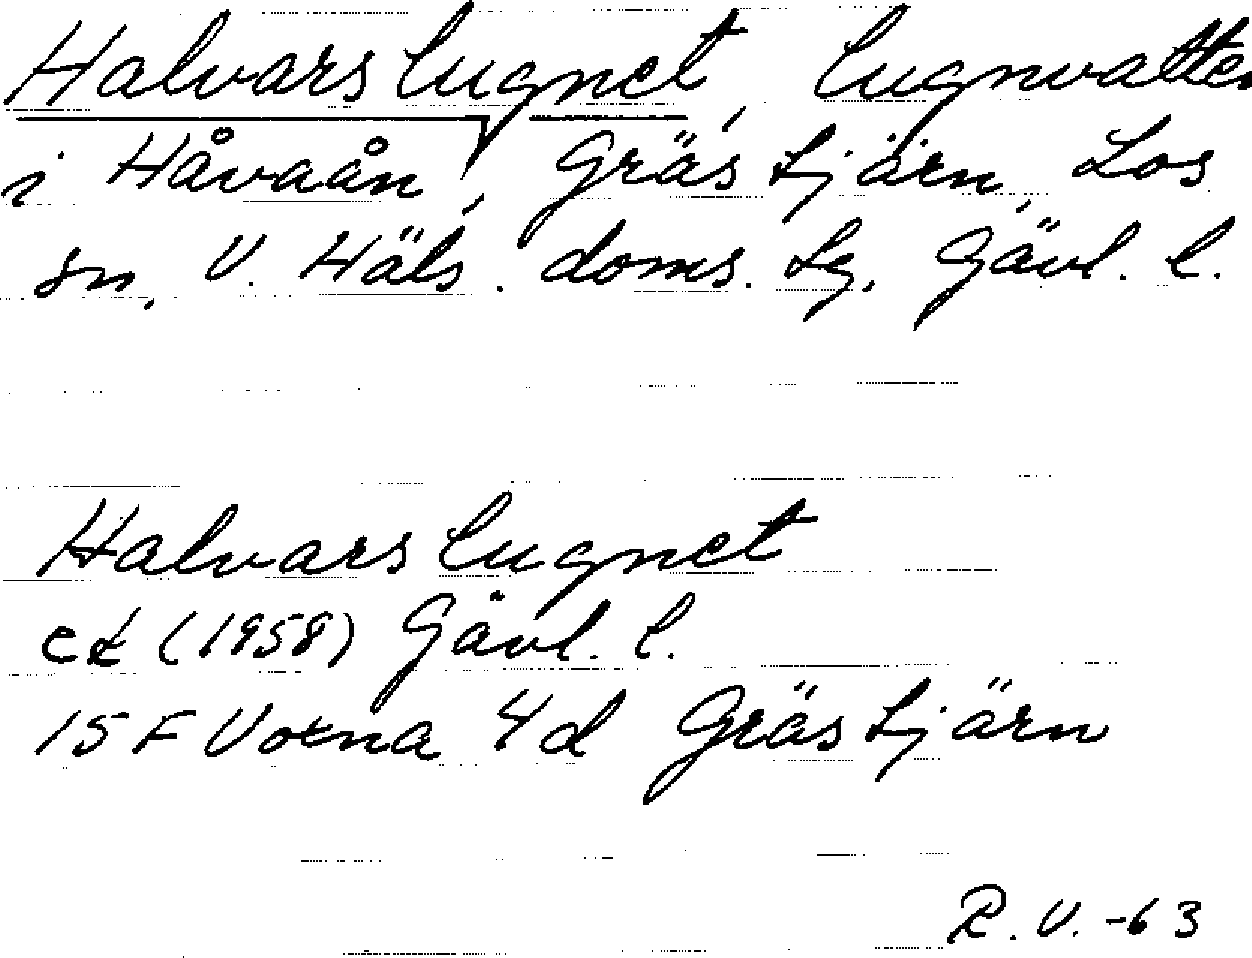 Halvarslugnet, lugnvatten
i Håvaån, Grästjärn, Los
sn, V. Häls. doms. tg, Gävl. l.
Halvarslugnet
ek (1958) Gävl. l.
15 F Voxna 4d Grästjärn
R. V. -63